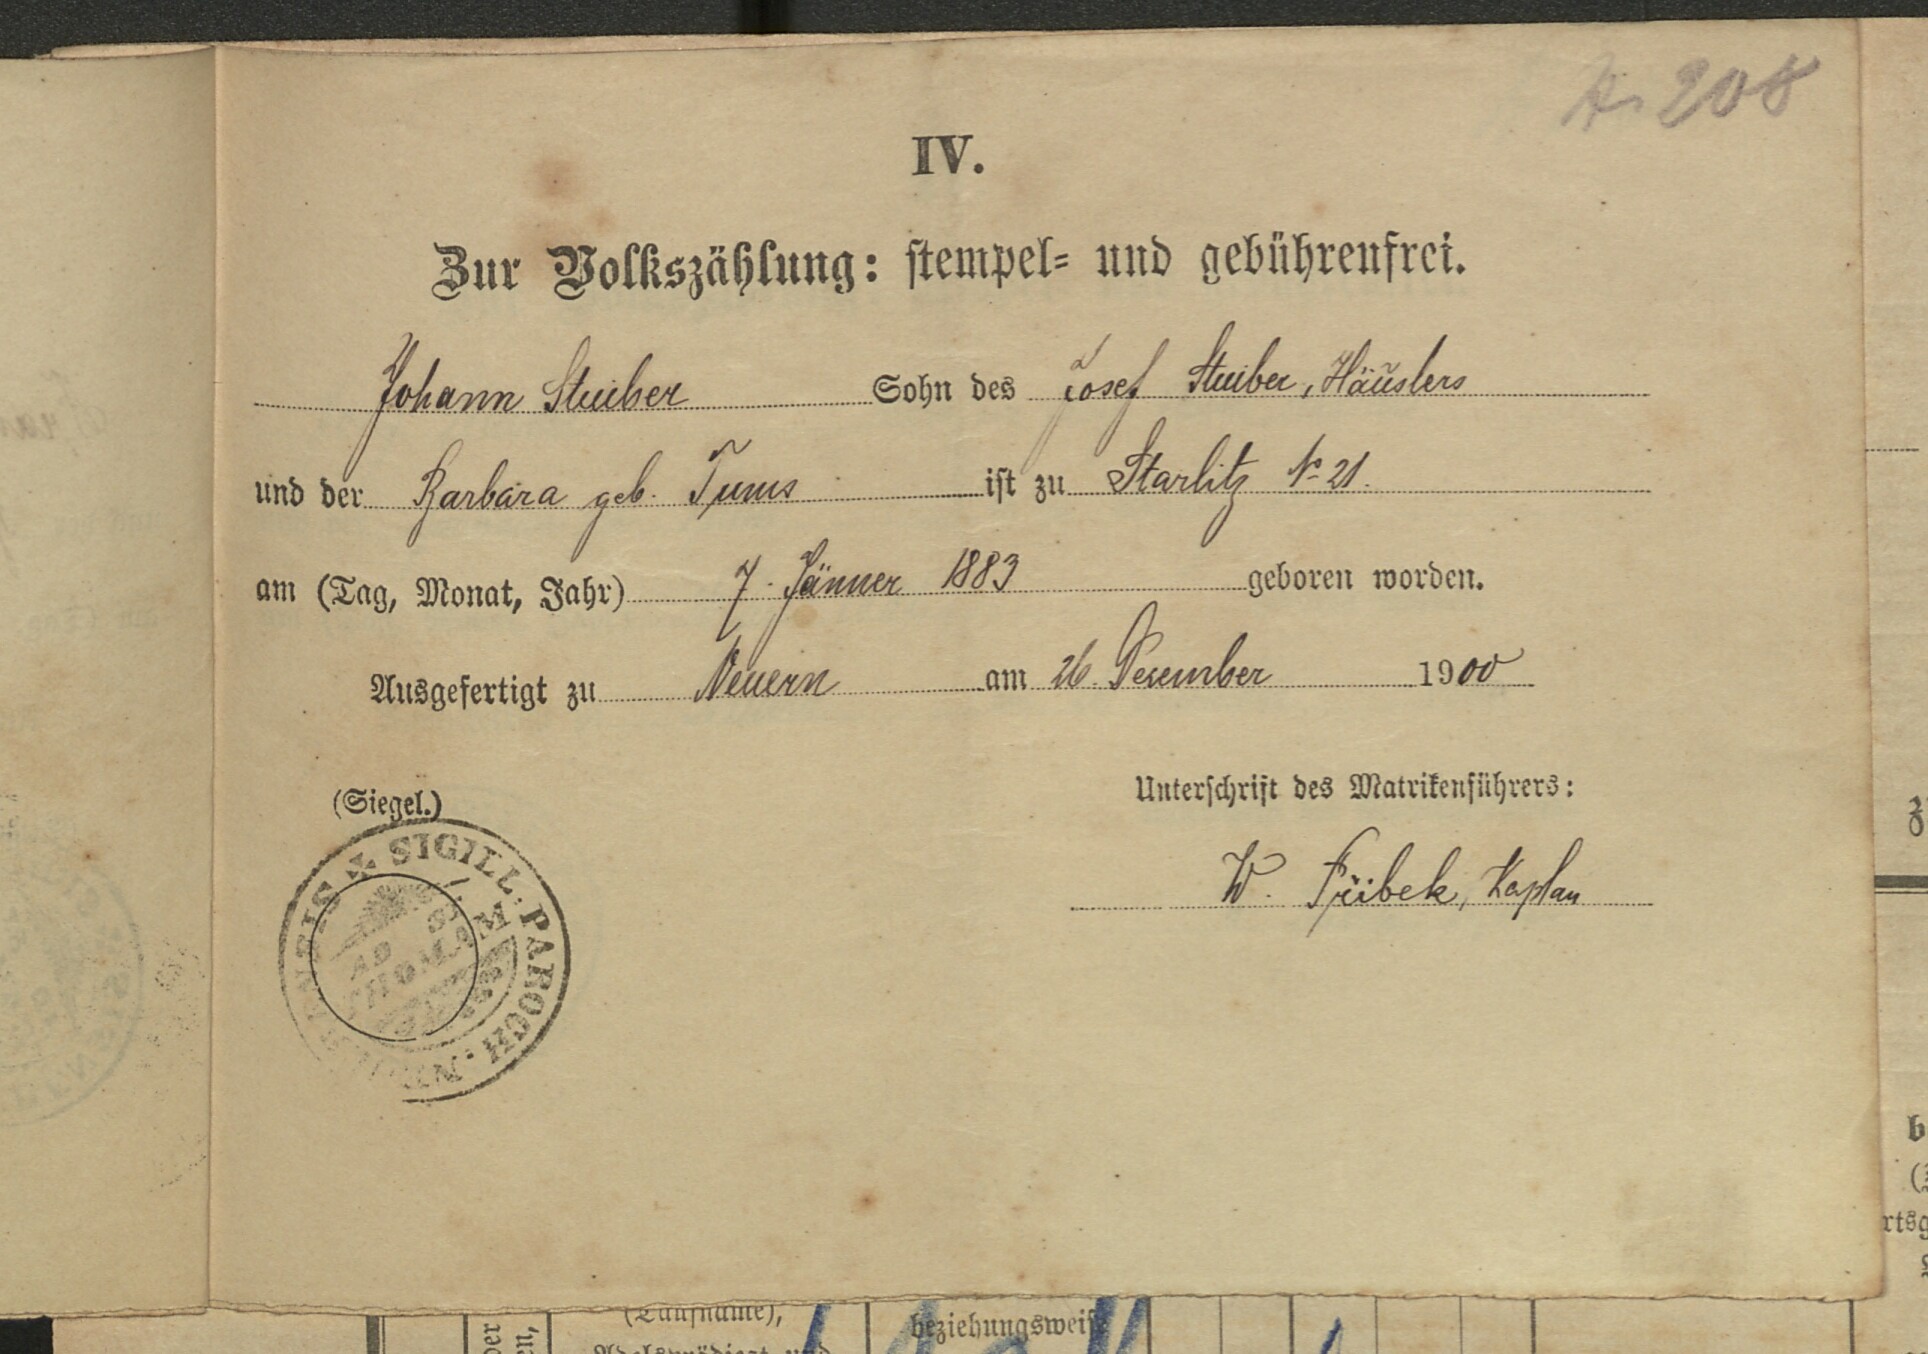 208
IV.
Zur Volkszählung: stempel- und gebührenfrei.
Johann Stuiber Sohn des Josef Stuiber, Häuslers
und der Barbara geb. Tums ist zu Starlitz N 21.
am (Tag, Monat, Jahr) 7. Jänner 1883 geboren worden.
Ausgefertigt zu Neuern am 26. Dezember 1900
(Siegel.)
Unterschrift des Matrikenführers:
W. Fribek, Kaplan
SIGILL. PAROCH.
AD S.
(Taufname),
beziehungsweise